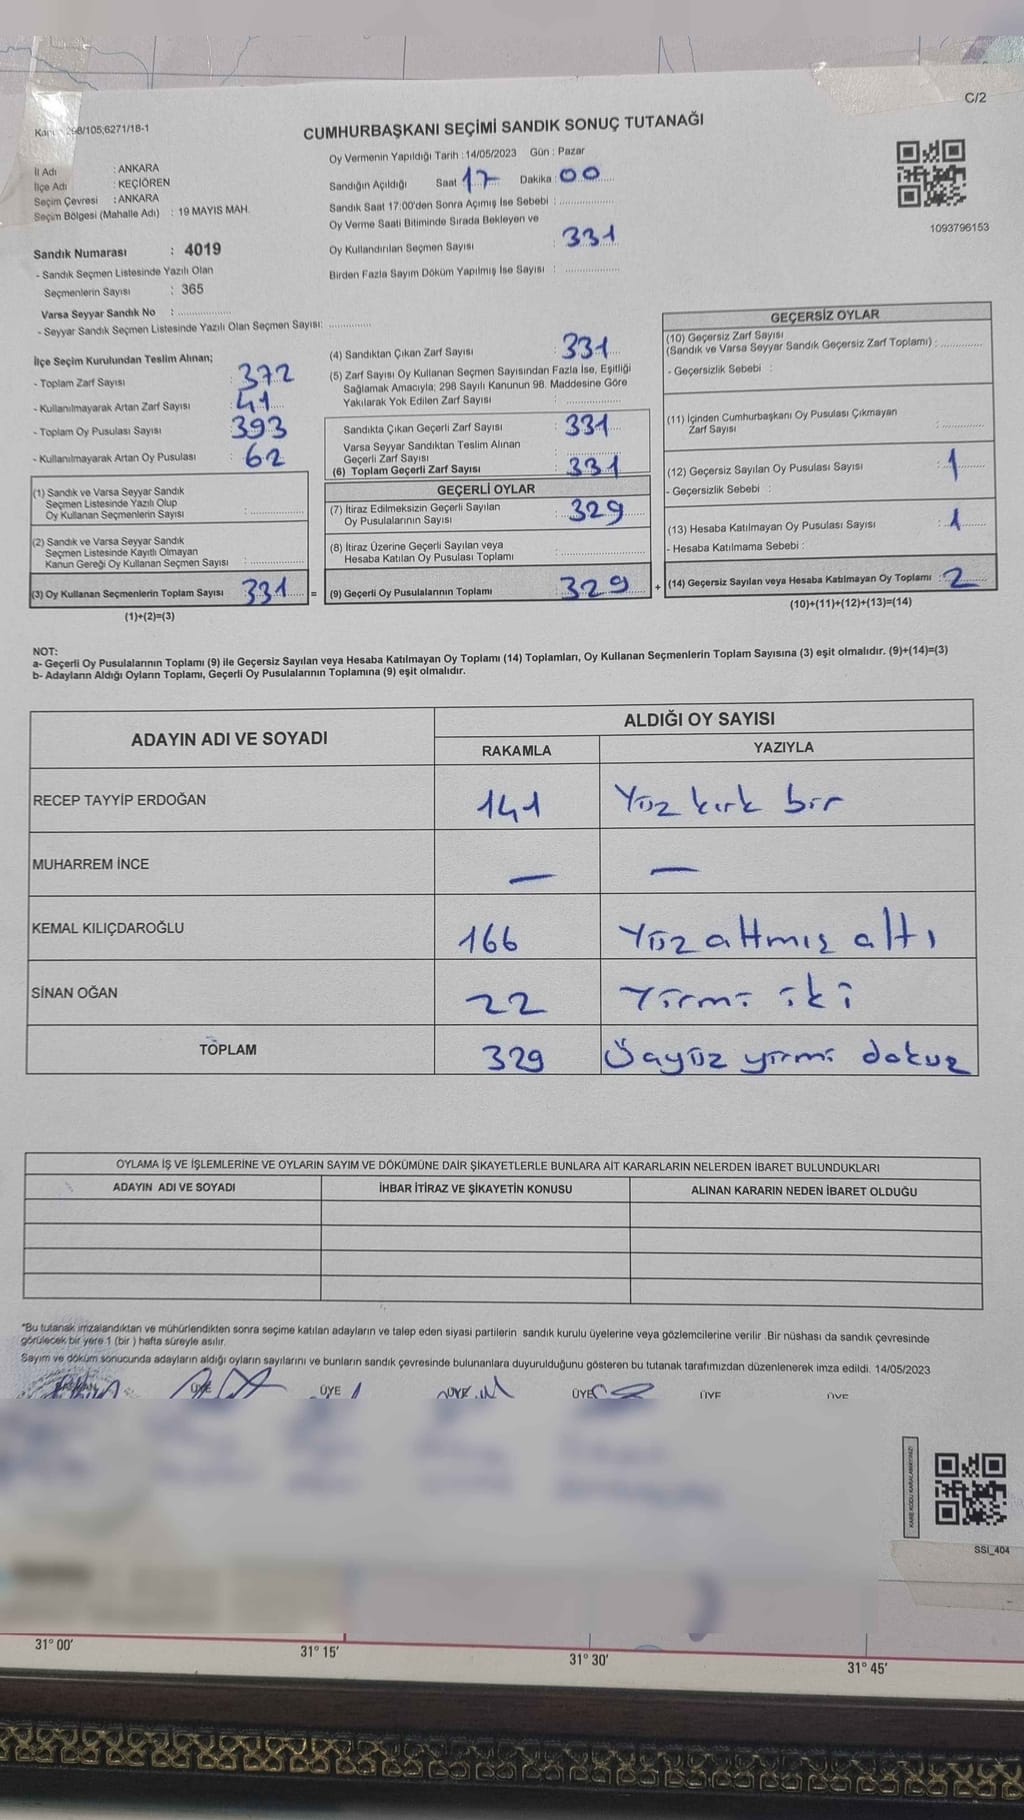 C/2
298/105,6271/18-1
CUMHURBAŞKANI SEÇİMİ SANDIK SONUÇ TUTANAĞI
İl Adı : ANKARA
İlçe Adı : KEÇİÖREN
Seçim Çevresi : ANKARA
Seçim Bölgesi (Mahalle Adı) : 19 MAYIS MAH.
Oy Vermenin Yapıldığı Tarih : 14/05/2023 Gün : Pazar
Sandığın Açıldığı Saat 17 Dakika : 00
Sandık Saat 17:00'den Sonra Açımış İse Sebebi :
Oy Verme Saati Bitiminde Sırada Bekleyen ve
Oy Kullandırılan Seçmen Sayısı : 331
Birden Fazla Sayım Döküm Yapılmış İse Sayısı :
1093796153
Sandık Numarası : 4019
- Sandık Seçmen Listesinde Yazılı Olan
Seçmenlerin Sayısı : 365
Varsa Seyyar Sandık No :
- Seyyar Sandık Seçmen Listesinde Yazılı Olan Seçmen Sayısı:
İlçe Seçim Kurulundan Teslim Alınan;
- Toplam Zarf Sayısı : 372
- Kullanılmayarak Artan Zarf Sayısı : 41
- Toplam Oy Pusulası Sayısı : 393
- Kullanılmayarak Artan Oy Pusulası : 62
(1) Sandık ve Varsa Seyyar Sandık
Seçmen Listesinde Yazılı Olup
Oy Kullanan Seçmenlerin Sayısı :
(2) Sandık ve Varsa Seyyar Sandık
Seçmen Listesinde Kayıtlı Olmayan
Kanun Gereği Oy Kullanan Seçmen Sayısı :
(3) Oy Kullanan Seçmenlerin Toplam Sayısı 331 =
(1)+(2)=(3)
(4) Sandıktan Çıkan Zarf Sayısı : 331
(5) Zarf Sayısı Oy Kullanan Seçmen Sayısından Fazla İse, Eşitliği
Sağlamak Amacıyla; 298 Sayılı Kanunun 98. Maddesine Göre
Yakılarak Yok Edilen Zarf Sayısı :
Sandıkta Çıkan Geçerli Zarf Sayısı : 331
Varsa Seyyar Sandıktan Teslim Alınan
Geçerli Zarf Sayısı :
(6) Toplam Geçerli Zarf Sayısı : 331
GEÇERLİ OYLAR
(7) İtiraz Edilmeksizin Geçerli Sayılan
Oy Pusulalarının Sayısı : 329
(8) İtiraz Üzerine Geçerli Sayılan veya
Hesaba Katılan Oy Pusulası Toplamı :
(9) Geçerli Oy Pusulalarının Toplamı : 329 +
GEÇERSİZ OYLAR
(10) Geçersiz Zarf Sayısı
(Sandık ve Varsa Seyyar Sandık Geçersiz Zarf Toplamı) :
- Geçersizlik Sebebi :
(11) İçinden Cumhurbaşkanı Oy Pusulası Çıkmayan
Zarf Sayısı :
(12) Geçersiz Sayılan Oy Pusulası Sayısı : 1
- Geçersizlik Sebebi :
(13) Hesaba Katılmayan Oy Pusulası Sayısı : 1
- Hesaba Katılmama Sebebi :
(14) Geçersiz Sayılan veya Hesaba Katılmayan Oy Toplamı : 2
(10)+(11)+(12)+(13)=(14)
NOT:
a- Geçerli Oy Pusulalarının Toplamı (9) ile Geçersiz Sayılan veya Hesaba Katılmayan Oy Toplamı (14) Toplamları, Oy Kullanan Seçmenlerin Toplam Sayısına (3) eşit olmalıdır. (9)+(14)=(3)
b- Adayların Aldığı Oyların Toplamı, Geçerli Oy Pusulalarının Toplamına (9) eşit olmalıdır.
ADAYIN ADI VE SOYADI
ALDIĞI OY SAYISI
RAKAMLA YAZIYLA
RECEP TAYYİP ERDOĞAN 141 Yüz kırk bir
MUHARREM İNCE — —
KEMAL KILIÇDAROĞLU 166 Yüz altmış altı
SİNAN OĞAN 22 Yirmi iki
TOPLAM 329 Üçyüz yirmi dokuz
OYLAMA İŞ VE İŞLEMLERİNE VE OYLARIN SAYIM VE DÖKÜMÜNE DAİR ŞİKAYETLERLE BUNLARA AİT KARARLARIN NELERDEN İBARET BULUNDUKLARI
ADAYIN ADI VE SOYADI İHBAR İTİRAZ VE ŞİKAYETİN KONUSU ALINAN KARARIN NEDEN İBARET OLDUĞU
"Bu tutanak imzalandıktan ve mühürlendikten sonra seçime katılan adayların ve talep eden siyasi partilerin sandık kurulu üyelerine veya gözlemcilerine verilir. Bir nüshası da sandık çevresinde
görülecek bir yere 1 (bir) hafta süreyle asılır.
Sayım ve döküm sonucunda adayların aldığı oyların sayılarını ve bunların sandık çevresinde bulunanlara duyurulduğunu gösteren bu tutanak tarafımızdan düzenlenerek imza edildi. 14/05/2023
BAŞKAN ÜYE ÜYE ÜYE ÜYE ÜYE ÜYE
SSI_404
31° 00' 31° 15' 31° 30' 31° 45'